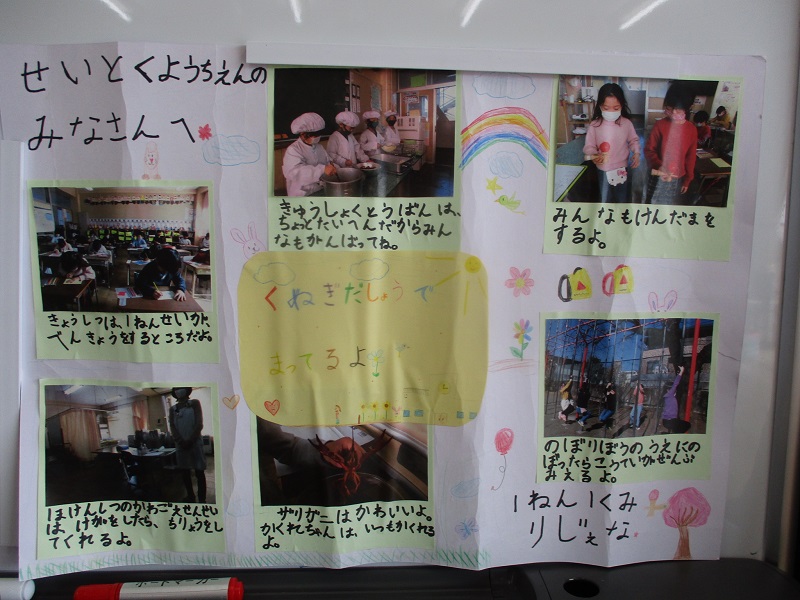 せいとくようちえんの
みなさんへ
きゅうしょくとうばんは、
ちょっとたいへんだからみん
なもがんばってね。
みんなもけんだまを
するよ。
きょうしつは、1ねんせいが、
べんきょうをするところだよ。
くぬぎだしょうで
まってるよ
のぼりぼうのうえにの
ぼったらこうていがぜんぶ
みえるよ。
ほけんしつのかわごえせんせい
は、けがをしたら、ちりょうをし
てくれるよ。
ザリガニはかわいいよ。
かくれちゃんは、いつもかくれる
よ。
1ねん1くみ
りじぇな
ボードマーカー